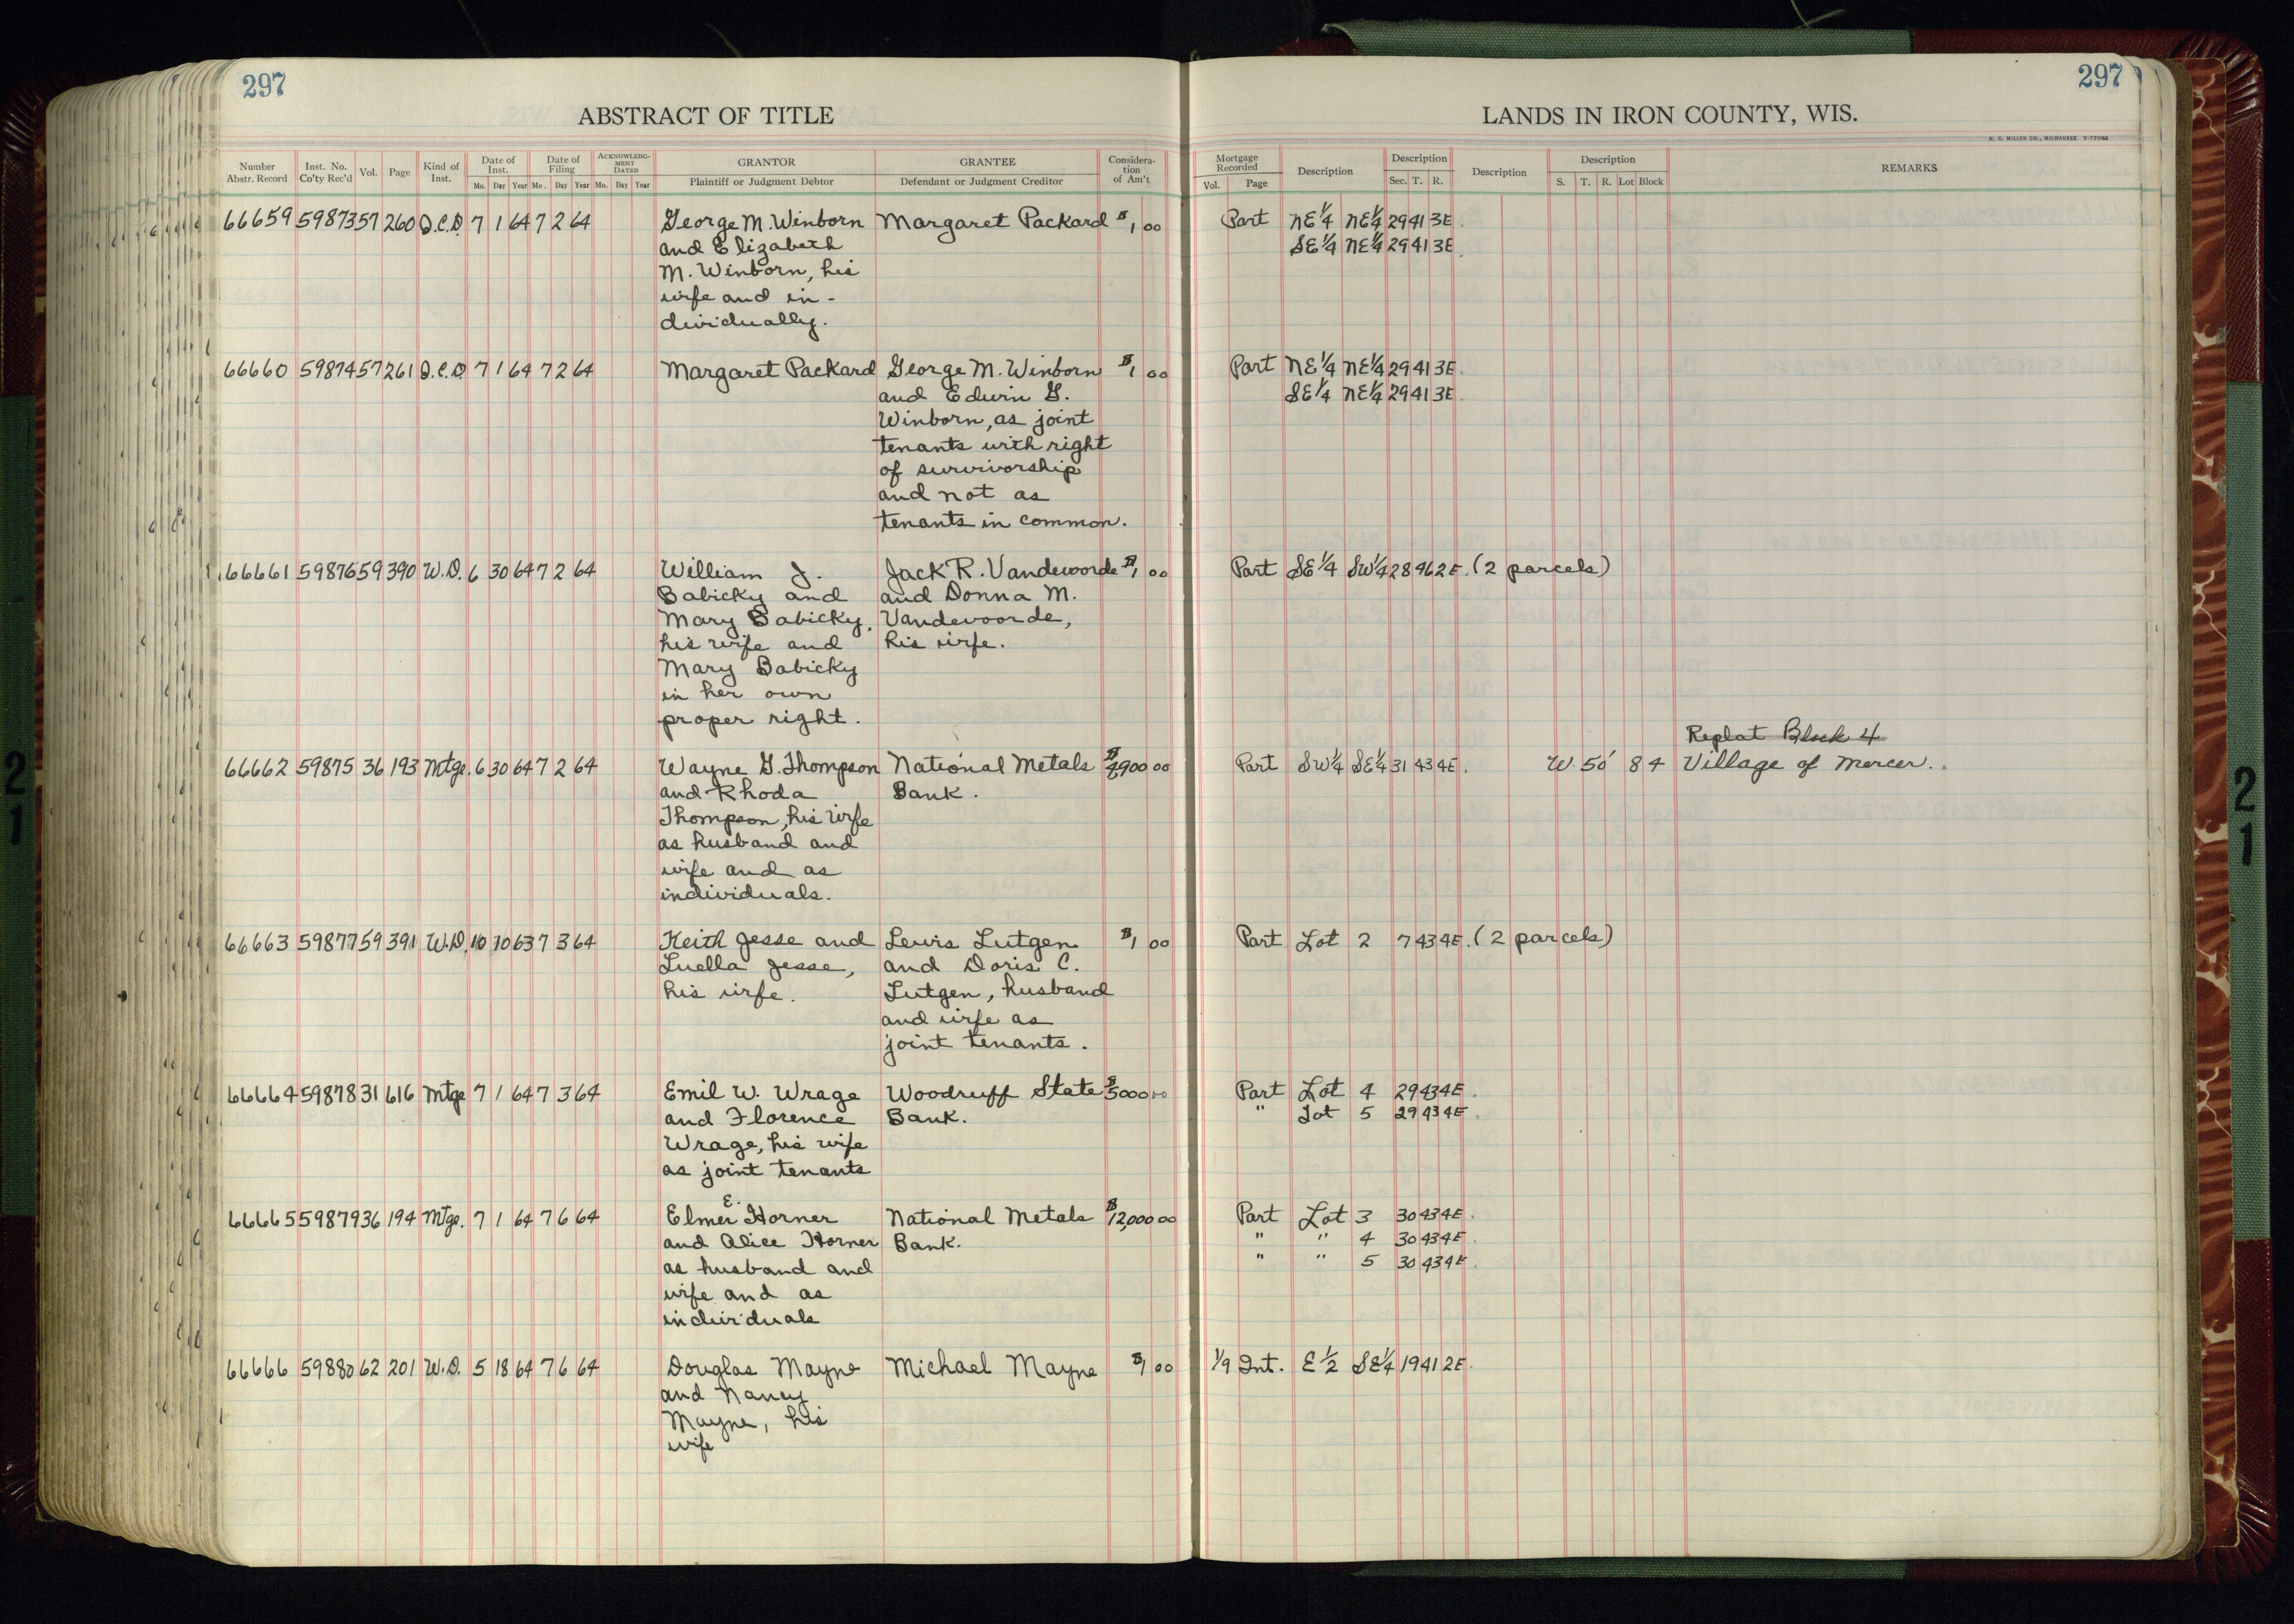 297
297
ABSTRACT OF TITLE
LANDS IN IRON COUNTY, WIS.
H. C. MILLER CO., MILWAUKEE
Number Abstr. Record Inst. No. Co'ty Rec'd Vol. Page Kind of Inst. Date of Inst. Mo. Day Year Date of Filing Mo. Day Year ACKNOWLEDGMENT DATED Mo. Day Year GRANTOR Plaintiff or Judgment Debtor GRANTEE Defendant or Judgment Creditor Considera-tion of Am't
Mortgage Recorded Vol. Page Description Description Sec. T. R. Description Description S. T. R. Lot Block REMARKS
66659 59873 57 260 Q.C.D. 7 1 64 7 2 64 George M. Winborn Margaret Packard $1 00 Part NE¼ NE¼ 29 41 3E.
and Elizabeth SE¼ NE¼ 29 41 3E.
M. Winborn, his
wife and in-
dividually.
66660 59874 57 261 Q.C.D. 7 1 64 7 2 64 Margaret Packard George M. Winborn $1 00 Part NE¼ NE¼ 29 41 3E.
and Edwin G. SE¼ NE¼ 29 41 3E.
Winborn, as joint
tenants with right
of survivorship
and not as
tenants in common.
66661 59876 59 390 W.D. 6 30 64 7 2 64 William J. Jack R. Vandevoorde $1 00 Part SE¼ SW¼ 28 46 2E. (2 parcels)
Babicky and and Donna M.
Mary Babicky, Vandevoorde,
his wife and his wife.
Mary Babicky
in her own
proper right.
Replat Block 4
66662 59875 36 193 Mtge. 6 30 64 7 2 64 Wayne G. Thompson National Metals $4,900 00 Part SW¼ SE¼ 31 43 4E. W. 50' 8 4 Village of Mercer.
and Rhoda Bank.
Thompson, his wife
as husband and
wife and as
individuals.
66663 59877 59 391 W.D. 10 10 63 7 3 64 Keith Jesse and Lewis Lutgen $1 00 Part Lot 2 7 43 4E. (2 parcels)
Luella Jesse, and Doris C.
his wife. Lutgen, husband
and wife as
joint tenants.
66664 59878 31 616 Mtge 7 1 64 7 3 64 Emil W. Wrage Woodruff State $5000 00 Part Lot 4 29 43 4E.
and Florence Bank. " Lot 5 29 43 4E.
Wrage, his wife
as joint tenants
66665 59879 36 194 Mtge. 7 1 64 7 6 64 Elmer E. Horner National Metals $12,000 00 Part Lot 3 30 43 4E.
and Alice Horner Bank. " " 4 30 43 4E.
as husband and " " 5 30 43 4E.
wife and as
individuals
66666 59880 62 201 W.D. 5 18 64 7 6 64 Douglas Mayne Michael Mayne $1 00 1/9 Int. E½ SE¼ 19 41 2E.
and Nancy
Mayne, his
wife
21
21